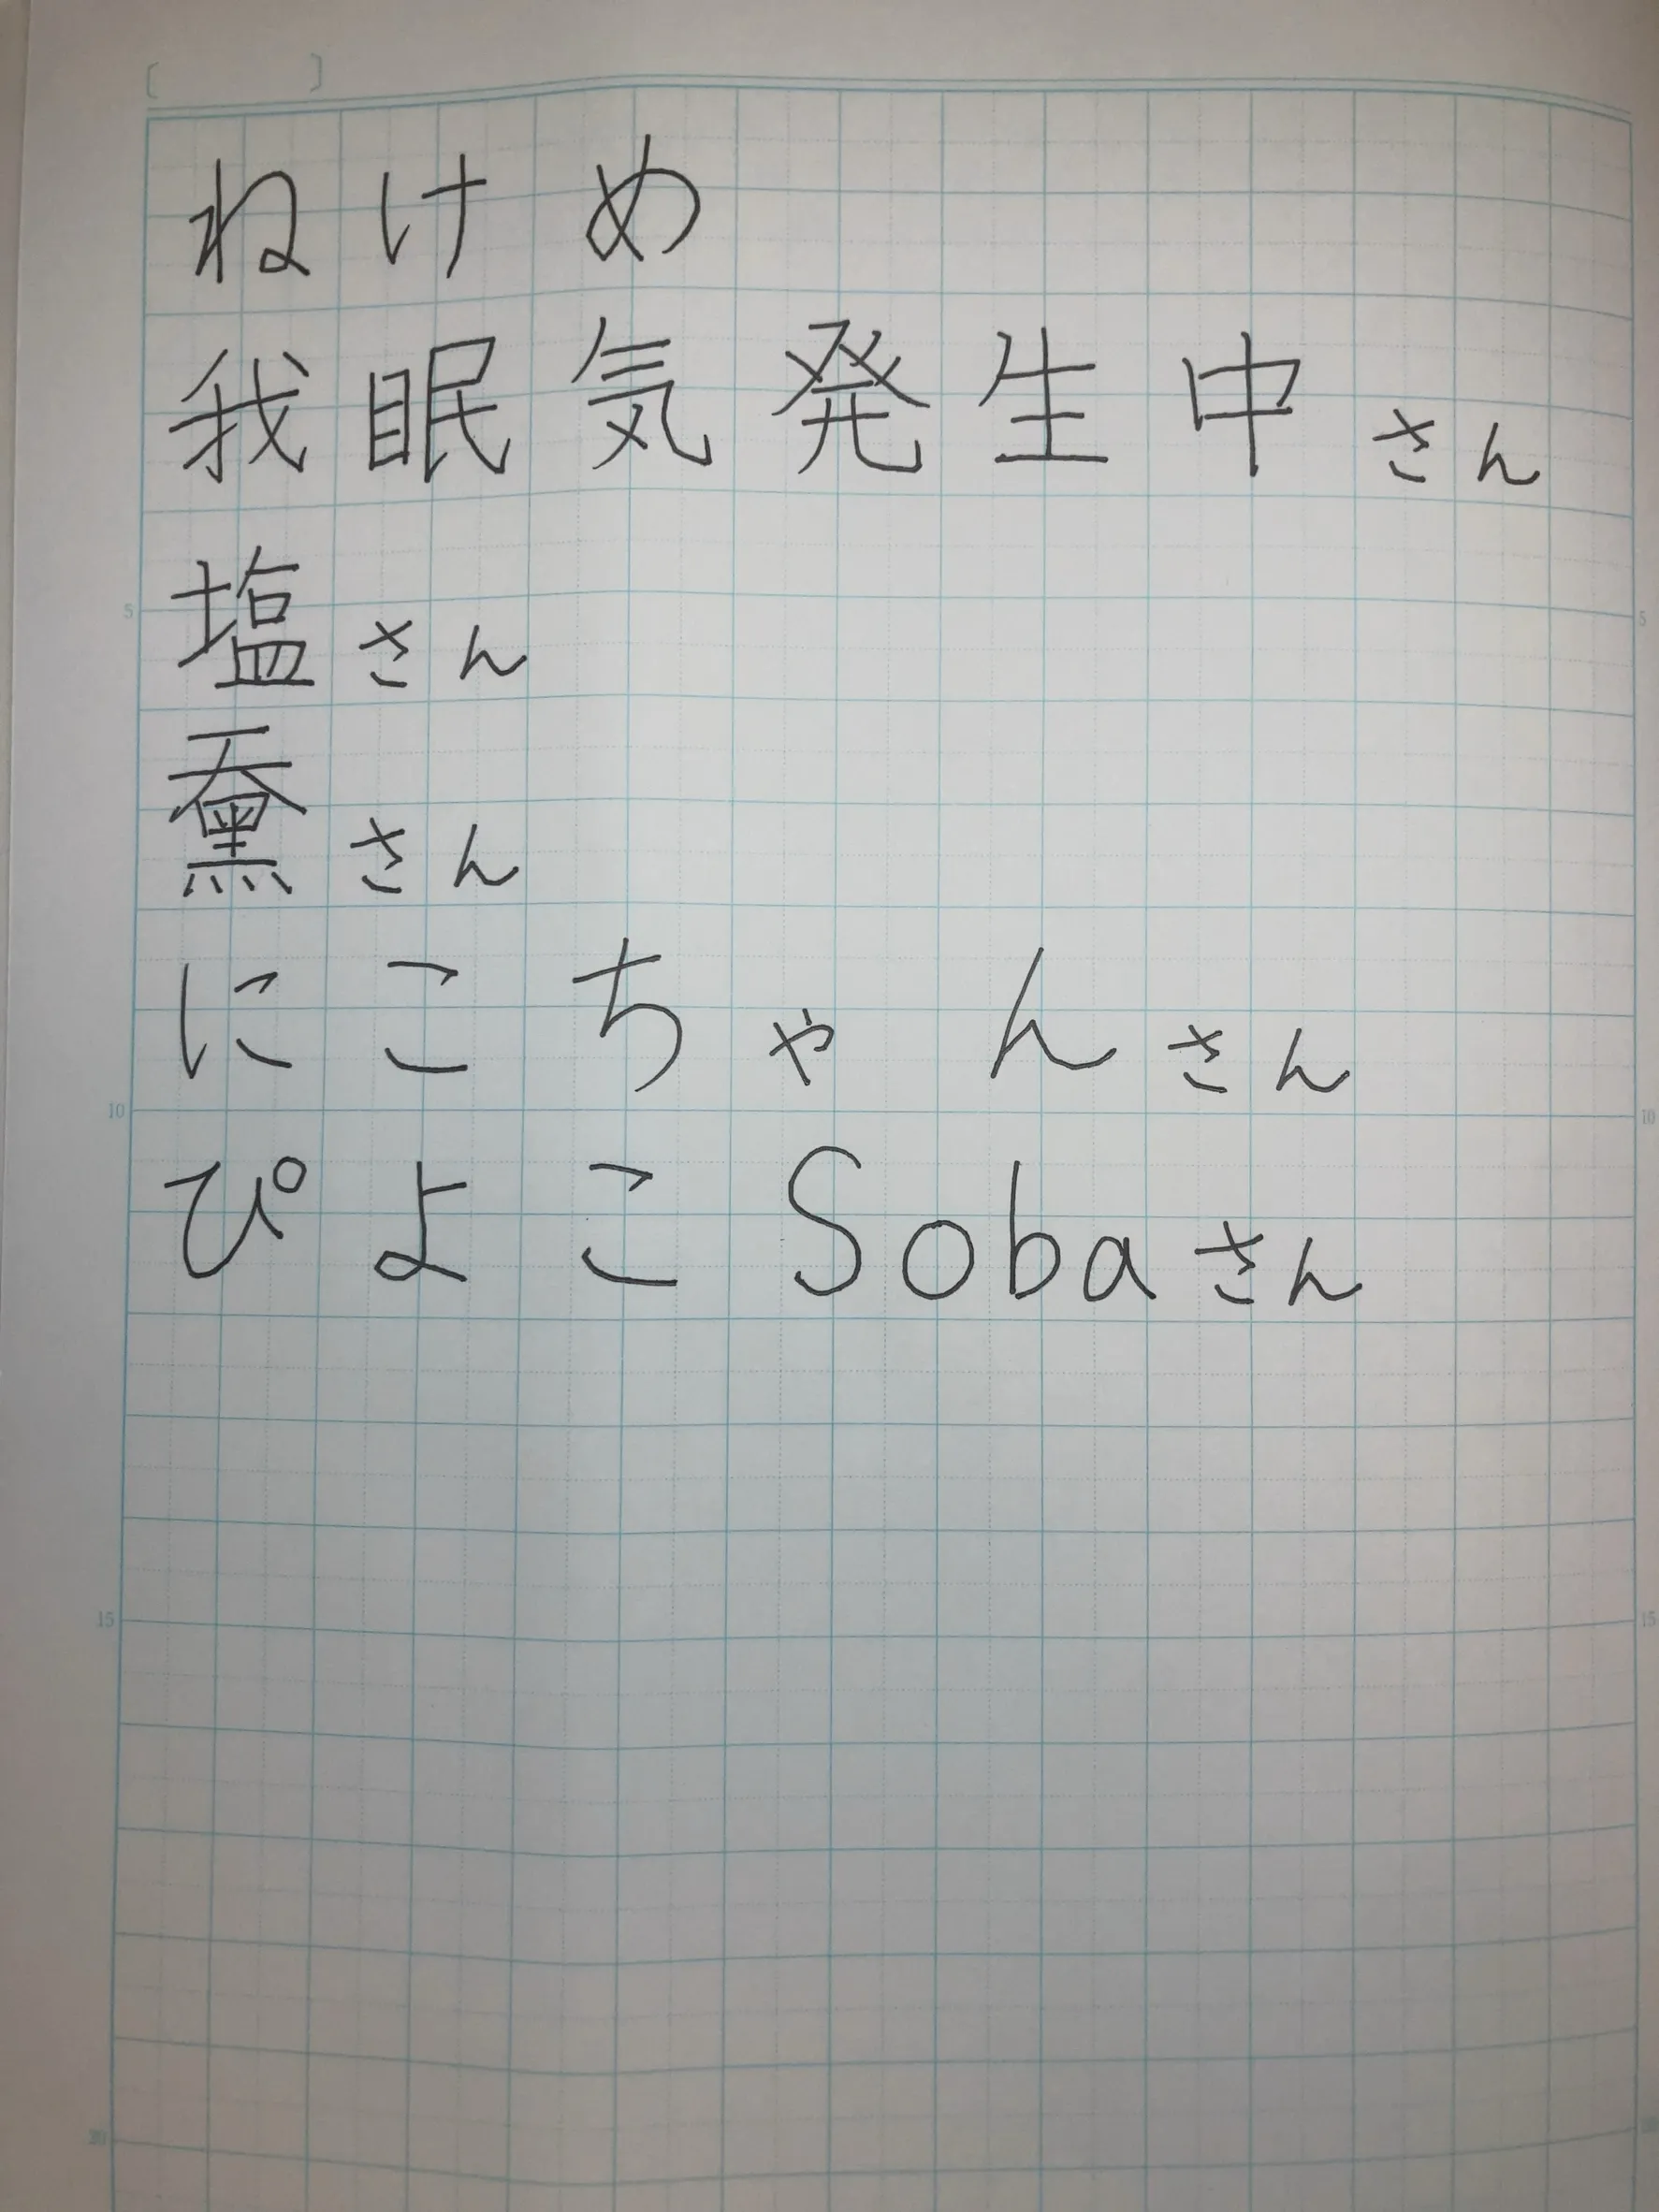 ねけめ
我眠気発生中さん
5 5
塩さん
さん
にこちゃんさん
10 10
ぴよこSobaさん
15 15
20